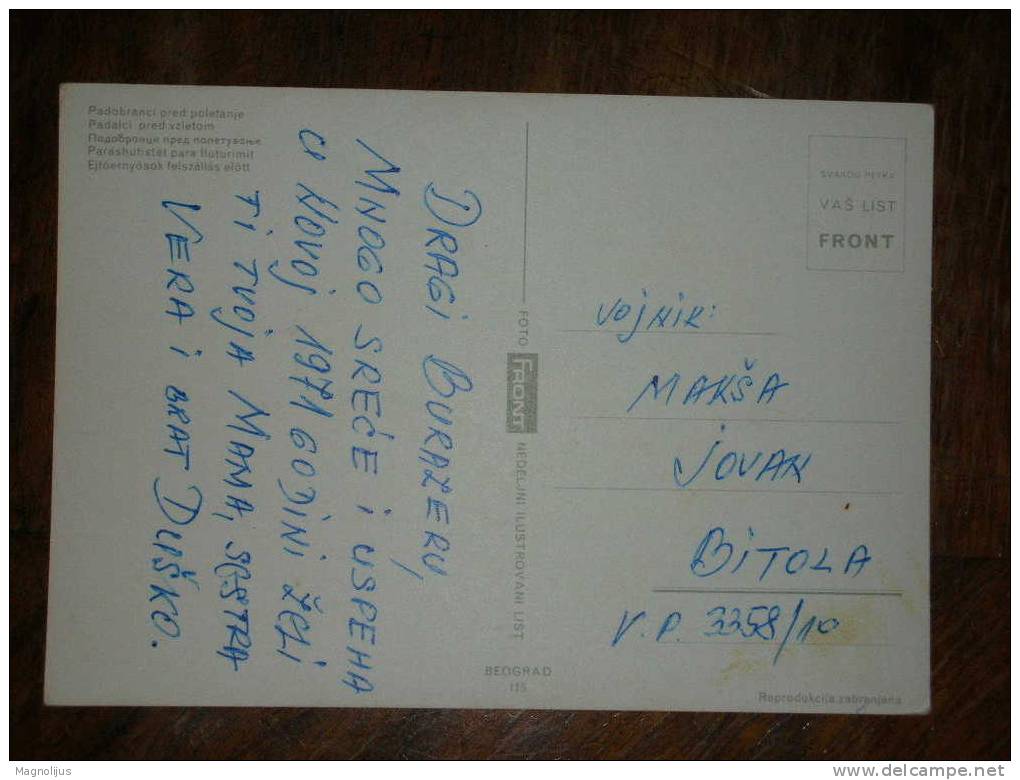 Padobranci pred poletanje
Padalci pred vzletom
Падобранци пред полетување
Parashutistët para fluturimit
Ejtőernyősök felszállás előtt
DRAGI BURAZERU,
MNOGO SREĆE I USPEHA
U NOVOJ 1971 GODINI ŽELI
TI TVOJA MAMA, SESTRA
VERA I BRAT DUŠKO.
FOTO FRONT NEDELJNI ILUSTROVANI LIST
BEOGRAD
115
SVAKOG PETKA
VAŠ LIST
FRONT
VOJNIK:
MAKŠA
JOVAN
BITOLA
V.P. 3358/10
Reprodukcija zabranjena
Magnolijus
delcampe.net